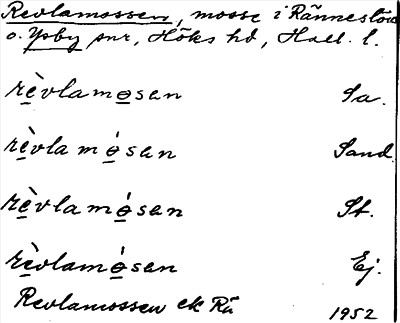 Revlamossen, mosse i Ränneslöv
o. Ysby snr, Höks hd, Hall. l.
rèvlamosen Sa.
rèvlamósen Sand
rèvlamósen St.
rèvlamósen Ej.
Revlamossen ek Rä 1952